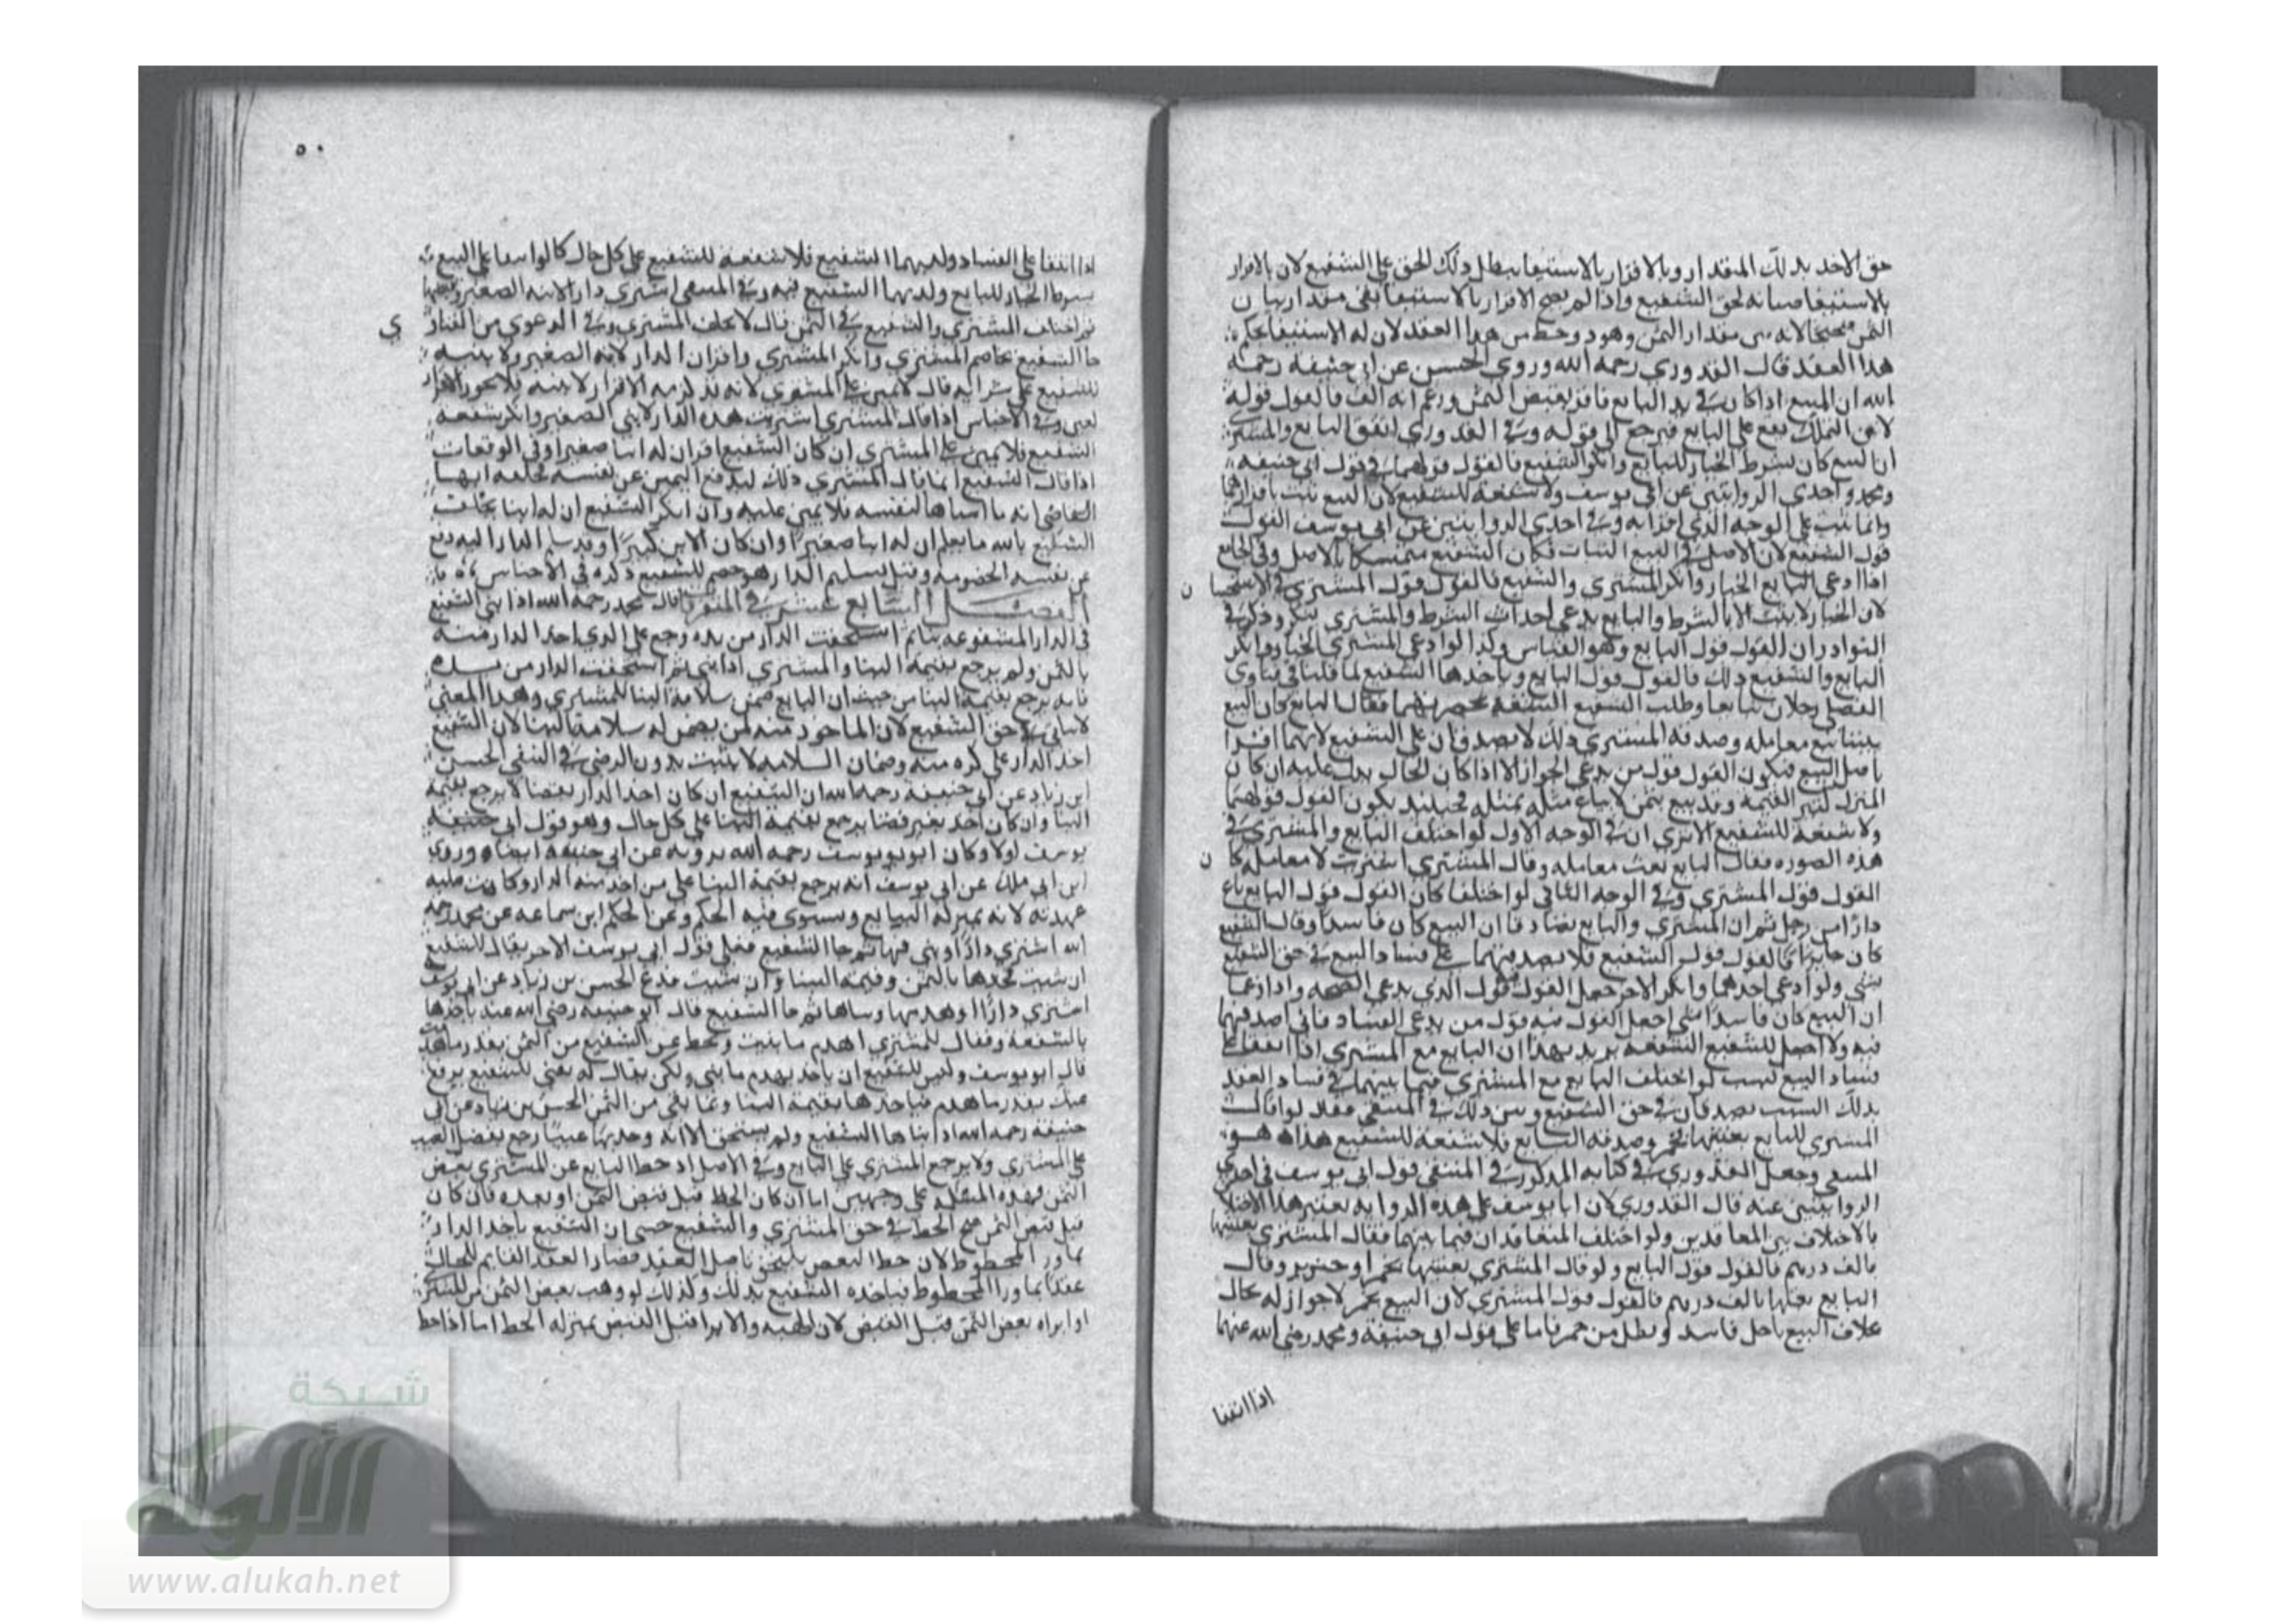 حق الاخذ بذلك المقدار وبالاقرار بالاستيفا يبطل ذلك الحق على الشفيع لان بالاقرار
بالاستيفا صيانة لحق الشفيع واذا لم يصح الاقرار بالاستيفا بقى مقدار بيان
الثمن صحيحا لانه بين مقدار الثمن وهو دوحط من هذا العقد لان له الاستيفا بحكم
هذا العقد قال القدوري رحمه الله وروى الحسن عن ابي حنيفة رحمة
الله ان المبيع اذا كان في يد البايع فاقر بقبض الثمن وزعم انه الف فالقول قوله
لان التملك يقع على البايع فيرجع الى قوله وفي القدوري اتفق البايع والمشتري
ان البيع كان بشرط الخيار للبايع وانكر الشفيع فالقول قولهما في قول ابي حنيفة
ومحمد واحدى الروايتين عن ابي يوسف ولا شفعة للشفيع لان البيع ثبت باقرارهما
وانما ثبت على الوجه الذي اقرا به وفي احدى الروايتين عن ابي يوسف القول
قول الشفيع لان الاصل في البيع البتات فكان الشفيع متمسكا بالاصل وفي الجامع
اذا ادعى البايع الخيار وانكر المشتري والشفيع فالقول قول المشتري في الاستحسان
لان الخيار لا يثبت الا بالشرط والبايع يدعي احداث الشرط والمشتري ينكر وذكر في
النوادر ان القول قول البايع وهو القياس وكذا لو ادعى المشتري الخيار وانكر
البايع والشفيع ذلك فالقول قول البايع وياخذها الشفيع لما قلنا في فتاوى
الفضلي رجلان تبايعا وطلب الشفيع الشفعة بحضرتهما فقال البايع كان البيع
بيننا بيع معاملة وصدقه المشتري ذلك لا يصدقان على الشفيع لانهما اقرا
باصل البيع فيكون القول قول من يدعي الجواز الا اذا كان الحال يدل عليه ان كان
المنزل كثير القيمة وقد بيع بثمن لا يباع مثله بمثله فحينئذ يكون القول قولهما
ولا شفعة للشفيع الا ترى ان في الوجه الاول لو اختلف البايع والمشتري في
هذه الصورة فقال البايع بعت معاملة وقال المشتري اشتريت لا معاملة كان
القول قول المشتري وفي الوجه الثاني لو اختلفا كان القول قول البايع باع
دارا من رجل ثم ان المشتري والبايع تصادقا ان البيع كان فاسدا وقال الشفيع
كان جايزا فالقول قول الشفيع فلا يصدقهما على فساد البيع في حق الشفيع
بشي ولو ادعى احدهما وانكر الاخر جعل القول قول الذي يدعي الصحة واذا زعما
ان البيع كان فاسدا اجعل القول فيه قول من يدعي الفساد فاني اصدقهما
فيه ولا اجعل للشفيع الشفعة يريد بهذا ان البايع مع المشتري اذا اتفقا على
فساد البيع لسبب لو اختلف البايع مع المشتري فيما بينهما في فساد العقد
بذلك السبب يصدقان في حق الشفيع وبين ذلك في المنتقى فقال لو قال
المشتري للبايع بعتنيها بخمر وصدقه البايع فلا شفعة للشفيع هذا هو
المنتقى وجعل القدوري في كتابه المذكور في المنتقى قول ابي يوسف في احدى
الروايتين عنه قال القدوري لان ابا يوسف على هذه الرواية يعتبر هذا الاختلاف
بالاختلاف بين المتعاقدين ولو اختلف المتعاقدان فيما بينهما فقال المشتري بعتنيها
بالف درهم فالقول قول البايع ولو قال المشتري بعتنيها بخمر او خنزير وقال
البايع بعتها بالف درهم فالقول قول المشتري لان البيع بخمر لا جواز له بحال
بخلاف البيع باجل فاسد او بطل من خمر فاما على قول ابي حنيفة ومحمد رضي الله عنهما
اذا اتفقا
٥٠
اذا اتفقا على الفساد ولم الشفيع فلا شفعة للشفيع على كل حال كما لو اتفقا على البيع
بشرط الخيار للبايع الشفيع فيه وفي المنتقى اشترى دارا لابنه الصغير
ثم اختلف المشتري والشفيع في الثمن قال لا يحلف المشتري وفي الدعوى من الفتاوي
جا الشفيع يخاصم المشتري وانكر المشتري واقر ان الدار لابنه الصغير ولا بينة
للشفيع على شرايه قال لا يمين على المشتري لانه قد لزمه الاقرار لابنه فلا يجوز اقراره
لغيره وفي الاجناس اذا قال المشتري اشتريت هذه الدار لابني الصغير وانكر شفعة
الشفيع فلا يمين على المشتري ان كان الشفيع اقر ان له ابنا صغيرا وفي الواقعات
اذا قال الشفيع انما قال المشتري ذلك ليدفع اليمين عن نفسه
القاضي انه ما لنفسه فلا يمين عليه وان انكر الشفيع ان له ابنا يحلف
الشفيع بالله ما يعلم ان له ابنا صغيرا وان كان الابن كبيرا وقد سلم الدار اليه دفع
عن نفسه الخصومة وقبل تسليم الدار هو خصم للشفيع ذكره في الاجناس
الفصل السابع عشر في المتفرقات قال محمد رحمه الله اذا بنى الشفيع
في الدار المشفوعة بنا ثم استحقت الدار من يده رجع على الذي اخذ الدار منه
بالثمن ولم يرجع بقيمة البنا والمشتري اذا بنى ثم استحقت الدار من يده
فانه يرجع بقيمة البنا من حيث ان البايع ضمن سلامة البنا للمشتري وهذا المعنى
لا يتاتى في حق الشفيع لان الماخوذ منه لم يضمن له سلامة البنا لان الشفيع
اخذ الدار على كره منه وضمان السلامة لا يثبت بدون الرضى في المنتقى الحسن
ابن زياد عن ابي حنيفة رحمه الله ان الشفيع ان كان اخذ الدار بقضا لا يرجع بقيمة
البنا وان كان اخذ بغير قضا يرجع بقيمة البنا على كل حال وهو قول ابي
يوسف اولا وكان ابو يوسف رحمه الله يرويه عن ابي حنيفة ايضا وروى
ابن ابي ملك عن ابي يوسف انه يرجع بقيمة البنا على من اخذ منه الدار وكانت عليه
عهدته لانه بمنزلة البيايع ويستوي فيه الحكم وعن الحكم ابن سماعة عن محمد رحمه
الله اشترى دارا وبنى فيها ثم جا الشفيع فعلى قول ابي يوسف الاخر يقال للشفيع
ان شيت فخذها بالثمن وقيمة البنا وان شيت فدع الحسن بن زياد عن ابي يوسف
اشترى دارا وهدمها وبناها ثم جا الشفيع قال ابو حنيفة رضي الله عنه ياخذها
بالشفعة ويقال للمشتري اهدم ما بنيت ويحط عن الشفيع من الثمن بقدر ما هدمت
قال ابو يوسف وليس للشفيع ان ياخذ بهدم ما بنى ولكن يقال له يعني للشفيع يرفع
عنك بقدر ما هدم فياخذها بقيمة البنا وبما بقي من الثمن الحسن بن زياد عن ابي
حنيفة رحمه الله اذا بناها الشفيع ولم يستحق الا انه وجد بها عيبا رجع بفضل العيب
على المشتري ولا يرجع المشتري على البايع وفي الاصل اذ حط البايع عن المشتري بعض
الثمن فهذه المسئلة على وجهين اما ان كان الحط قبل قبض الثمن او بعده فان كان
قبل قبض الثمن صح الحط في حق المشتري والشفيع حتى ان الشفيع ياخذ الدار
بما ورا المحطوط لان حط البعض يلتحق باصل العقد فصار العقد القايم للحال
عقدا بما ورا المحطوط فياخذه الشفيع بذلك وكذلك لو وهب بعض الثمن من المشتري
او ابراه بعض الثمن قبل القبض لان الهبة والابرا قبل القبض بمنزلة الحط اما اذا حط
شبكة
الألوكة
www.alukah.net